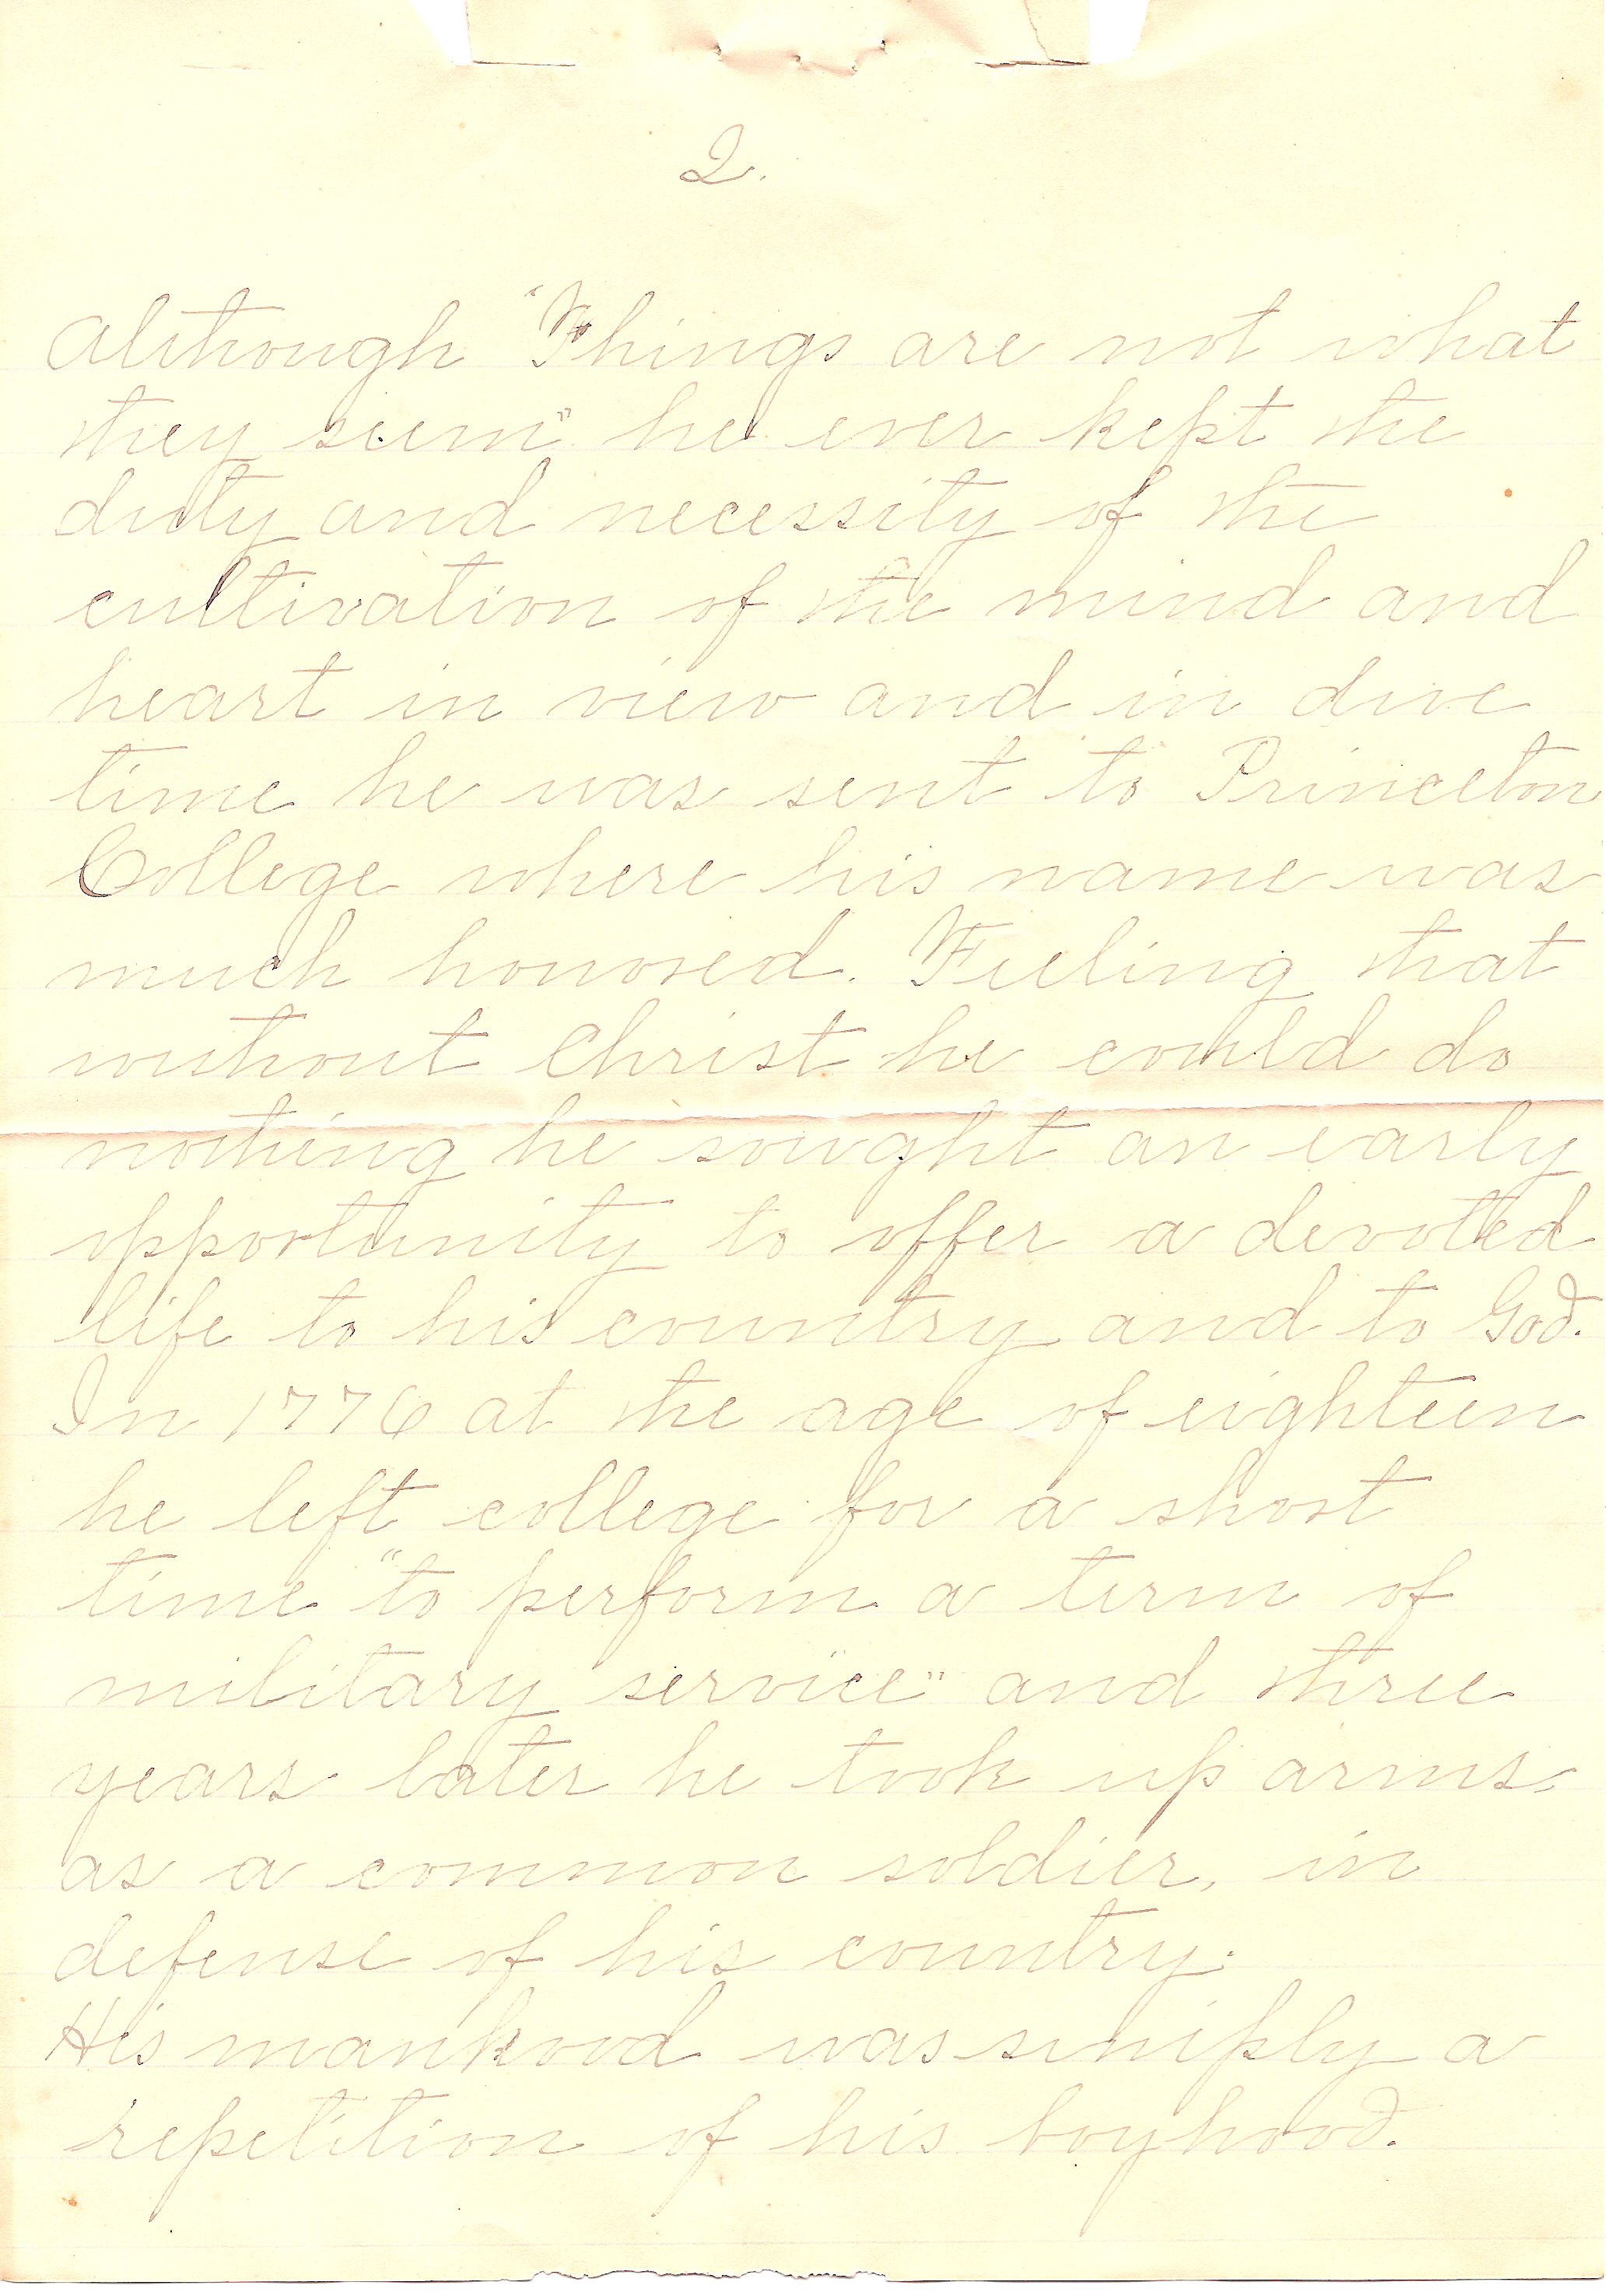 2.
Although "Things are not what
they seem" he ever kept the
duty and necessity of the
cultivation of the mind and
heart in view and in due
time he was sent to Princeton
College where his name was
much honored. Feeling that
without Christ he could do
nothing he sought an early
opportunity to offer a devoted
life to his country and to God.
In 1776 at the age of eighteen
he left college for a short
time "to perform a term of
military service" and three
years later he took up arms
as a common soldier, in
defense of his country.
His manhood was simply a
repetition of his boyhood.